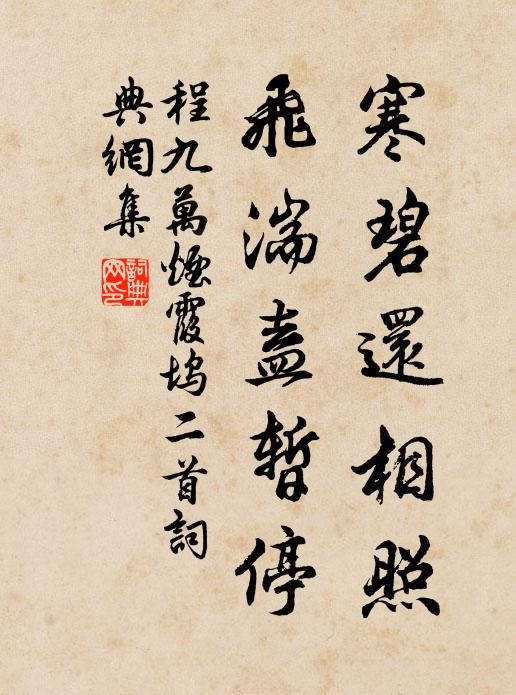 寒碧還相照
飛湍盍暫停
程九萬煙霞塢二首詞
典網集
詞典
网印